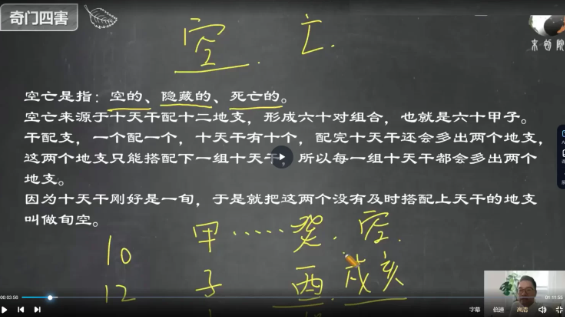 奇门四害
空.亡.
空亡是指：空的、隐藏的、死亡的。
空亡来源于十天干配十二地支，形成六十对组合，也就是六十甲子。
干配支，一个配一个，十天干有十个，配完十天干还会多出两个地支，
这两个地支只能搭配下一组十天干，所以每一组十天干都会多出两个
地支。
因为十天干刚好是一旬，于是就把这两个没有及时搭配上天干的地支
叫做旬空。
10 甲……癸.空.
12 子 酉.戌亥
字幕 倍速 高清